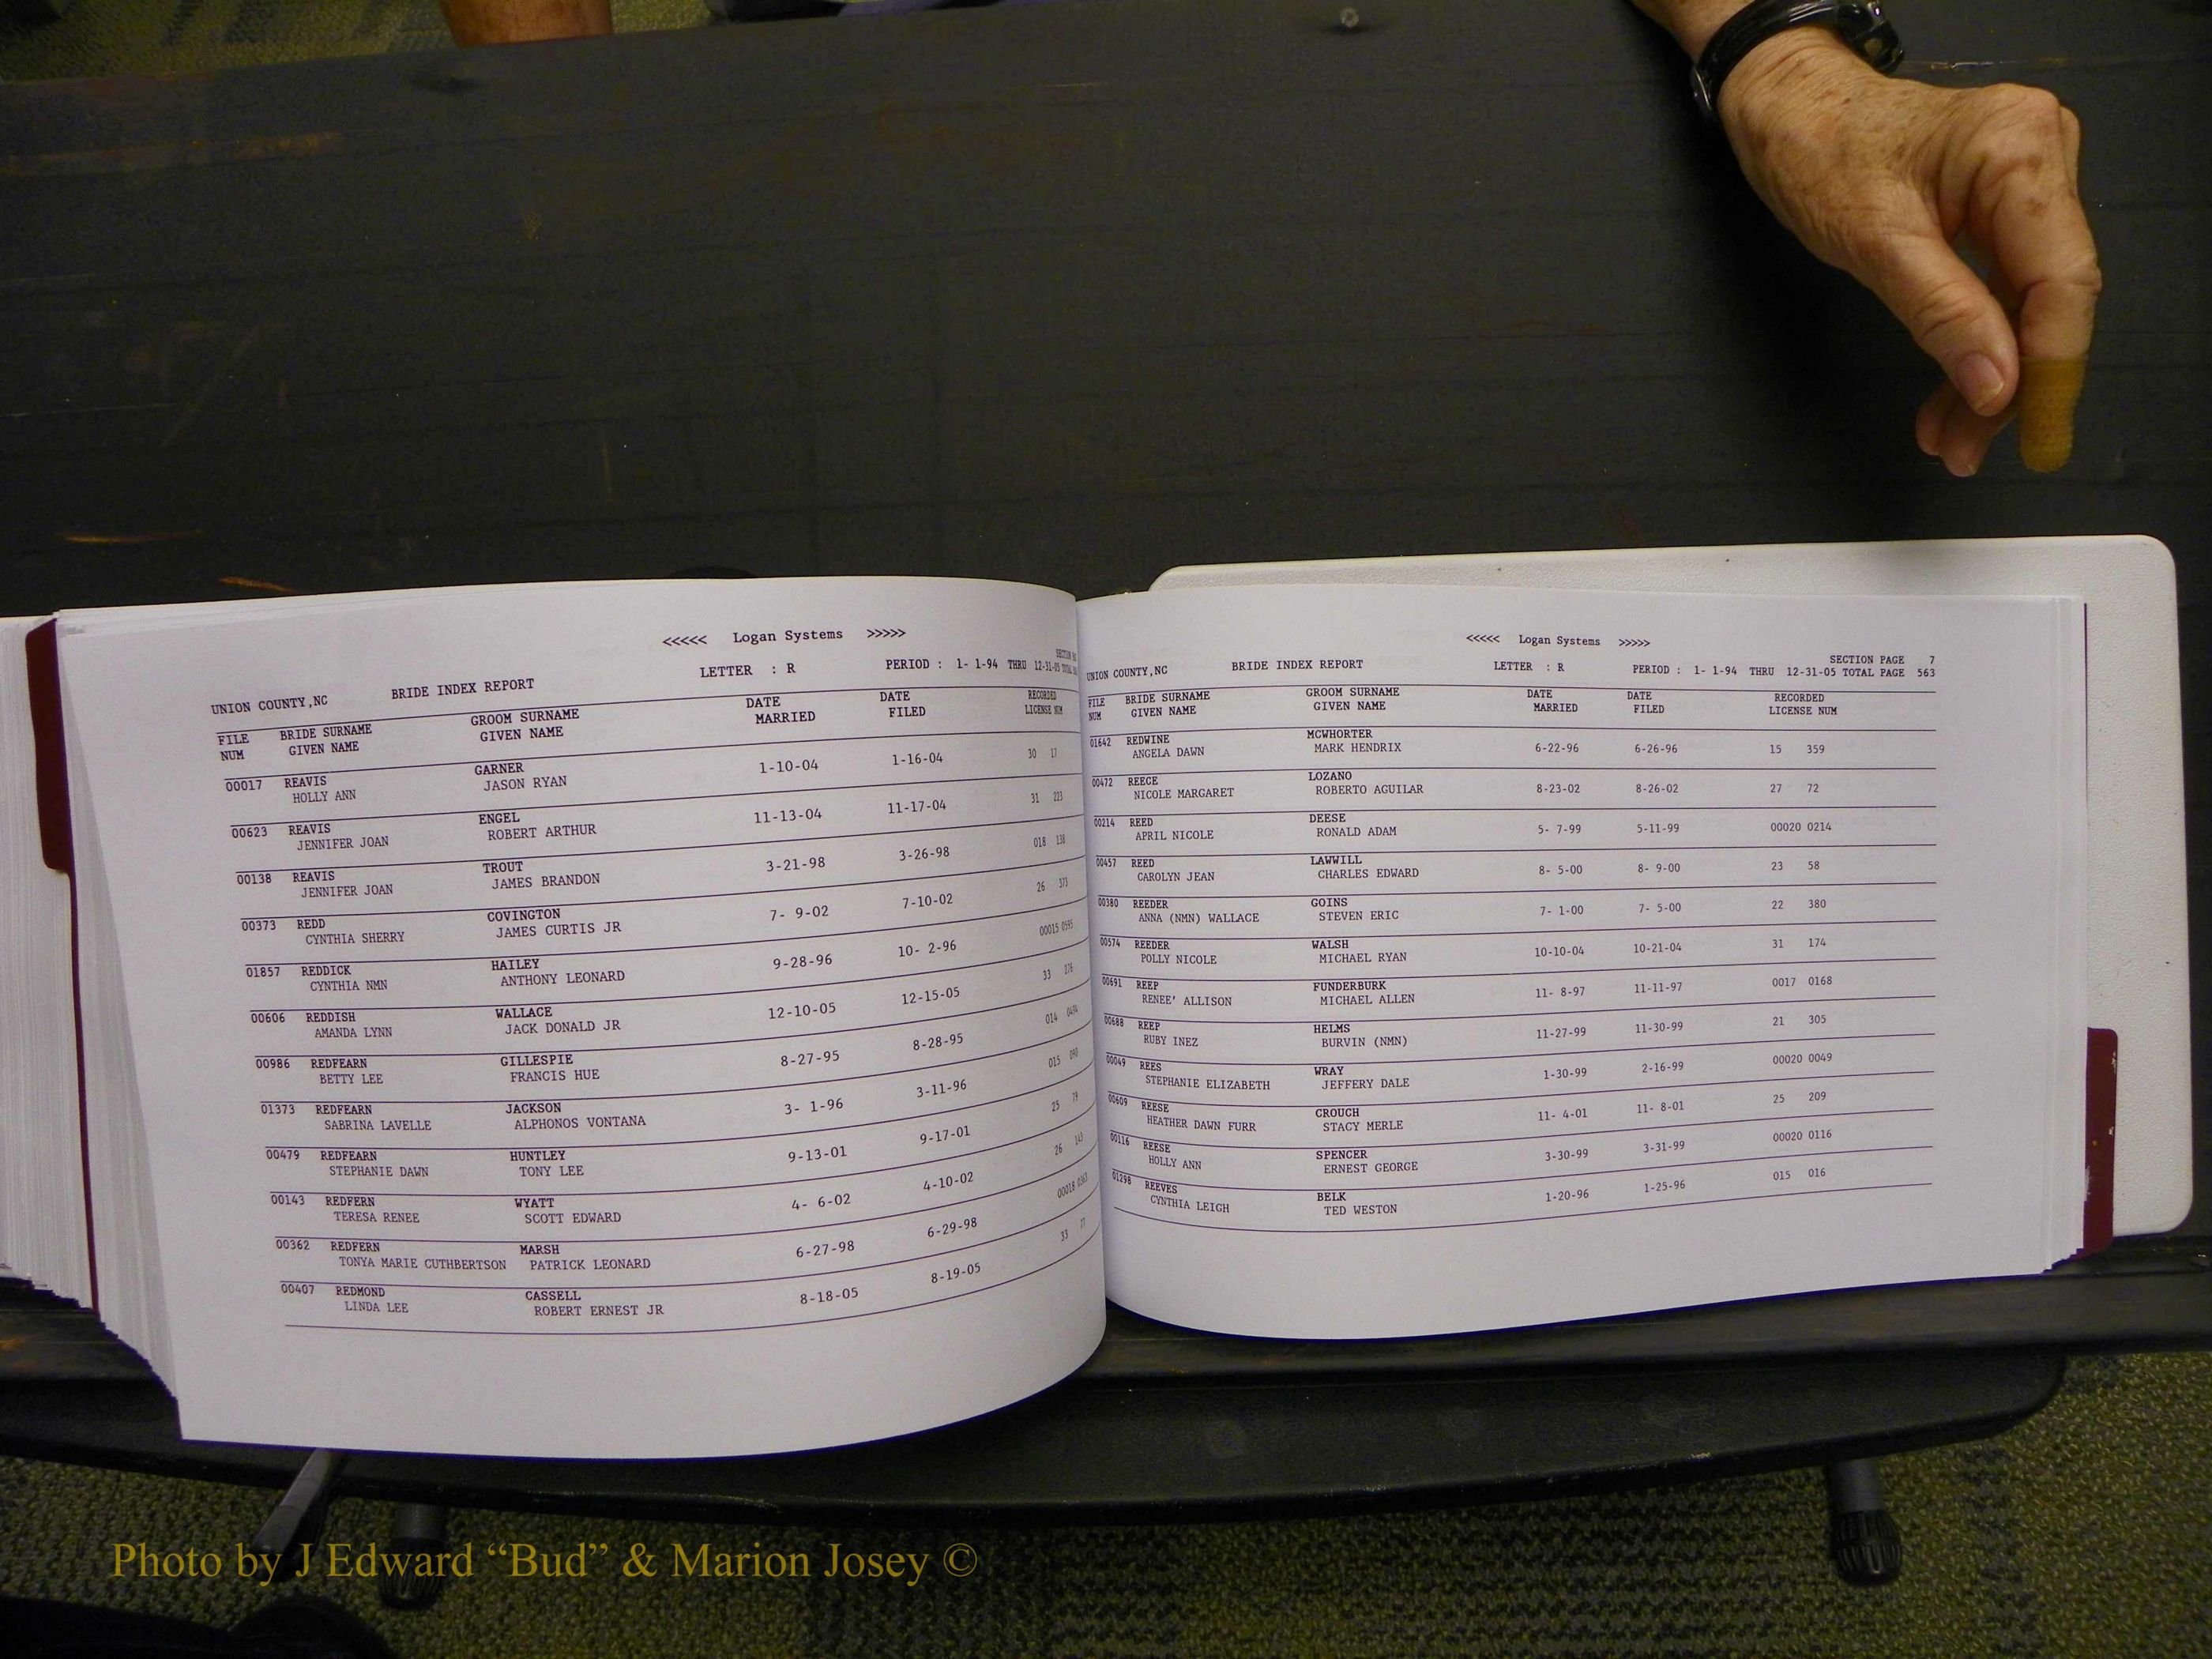 <<<<< Logan Systems >>>>>
UNION COUNTY,NC BRIDE INDEX REPORT LETTER : R PERIOD : 1- 1-94 THRU 12-31-05
FILE BRIDE SURNAME GROOM SURNAME DATE DATE RECORDED
NUM GIVEN NAME GIVEN NAME MARRIED FILED LICENSE NUM
00017 REAVIS GARNER 1-10-04 1-16-04 30 17
HOLLY ANN JASON RYAN
00623 REAVIS ENGEL 11-13-04 11-17-04 31 223
JENNIFER JOAN ROBERT ARTHUR
00138 REAVIS TROUT 3-21-98 3-26-98 018 138
JENNIFER JOAN JAMES BRANDON
00373 REDD COVINGTON 7- 9-02 7-10-02 26 373
CYNTHIA SHERRY JAMES CURTIS JR
01857 REDDICK HAILEY 9-28-96 10- 2-96 00015
CYNTHIA NMN ANTHONY LEONARD
00606 REDDISH WALLACE 12-10-05 12-15-05 33 276
AMANDA LYNN JACK DONALD JR
00986 REDFEARN GILLESPIE 8-27-95 8-28-95 014
BETTY LEE FRANCIS HUE
01373 REDFEARN JACKSON 3- 1-96 3-11-96 015
SABRINA LAVELLE ALPHONOS VONTANA
00479 REDFEARN HUNTLEY 9-13-01 9-17-01 25 79
STEPHANIE DAWN TONY LEE
00143 REDFERN WYATT 4- 6-02 4-10-02 26 143
TERESA RENEE SCOTT EDWARD
00362 REDFERN MARSH 6-27-98 6-29-98 00018
TONYA MARIE CUTHBERTSON PATRICK LEONARD
00407 REDMOND CASSELL 8-18-05 8-19-05 33 77
LINDA LEE ROBERT ERNEST JR
<<<<< Logan Systems >>>>>
SECTION PAGE 7
UNION COUNTY,NC BRIDE INDEX REPORT LETTER : R PERIOD : 1- 1-94 THRU 12-31-05 TOTAL PAGE 563
FILE BRIDE SURNAME GROOM SURNAME DATE DATE RECORDED
NUM GIVEN NAME GIVEN NAME MARRIED FILED LICENSE NUM
01642 REDWINE MCWHORTER 6-22-96 6-26-96 15 359
ANGELA DAWN MARK HENDRIX
00472 REECE LOZANO 8-23-02 8-26-02 27 72
NICOLE MARGARET ROBERTO AGUILAR
00214 REED DEESE 5- 7-99 5-11-99 00020 0214
APRIL NICOLE RONALD ADAM
00457 REED LAWWILL 8- 5-00 8- 9-00 23 58
CAROLYN JEAN CHARLES EDWARD
00380 REEDER GOINS 7- 1-00 7- 5-00 22 380
ANNA (NMN) WALLACE STEVEN ERIC
00574 REEDER WALSH 10-10-04 10-21-04 31 174
POLLY NICOLE MICHAEL RYAN
00691 REEP FUNDERBURK 11- 8-97 11-11-97 0017 0168
RENEE' ALLISON MICHAEL ALLEN
00688 REEP HELMS 11-27-99 11-30-99 21 305
RUBY INEZ BURVIN (NMN)
00049 REES WRAY 1-30-99 2-16-99 00020 0049
STEPHANIE ELIZABETH JEFFERY DALE
00609 REESE CROUCH 11- 4-01 11- 8-01 25 209
HEATHER DAWN FURR STACY MERLE
00116 REESE SPENCER 3-30-99 3-31-99 00020 0116
HOLLY ANN ERNEST GEORGE
01298 REEVES BELK 1-20-96 1-25-96 015 016
CYNTHIA LEIGH TED WESTON
Photo by J Edward “Bud” & Marion Josey ©